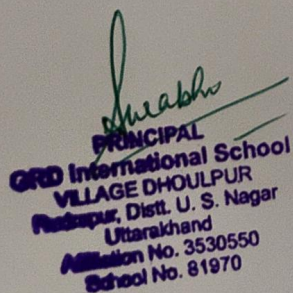 Surabhi
PRINCIPAL
GRD International School
VILLAGE DHOULPUR
Rudrapur, Distt. U. S. Nagar
Uttarakhand
Affiliation No. 3530550
School No. 81970